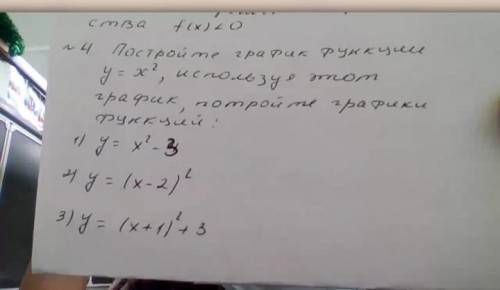 ства f(x)<0
№4. Постройте график функции
y = x², используя этот
график, потройте графики
функций:
1) y = x² - 3
2) y = (x-2)²
3) y = (x+1)² + 3